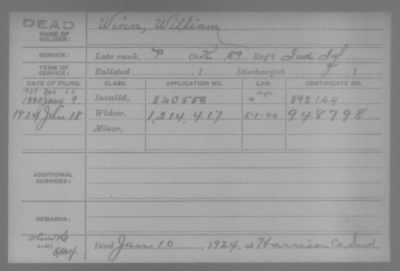 DEAD
NAME OF SOLDIER: Winn, William
SERVICE: Late rank, P Co. K, 59 Reg't Ind Inf
TERM OF SERVICE: Enlisted , 1 Discharged , 1
DATE OF FILING. CLASS. APPLICATION NO. LAW. CERTIFICATE NO.
1880 Jany 9 Invalid, 340556 892144
1924 Jan 18 Widow, 1,214,417 5-1-20 948798
Minor,
ADDITIONAL SERVICES:
REMARKS:
Died Jan 10, 1924, at Harrison Co, Ind.